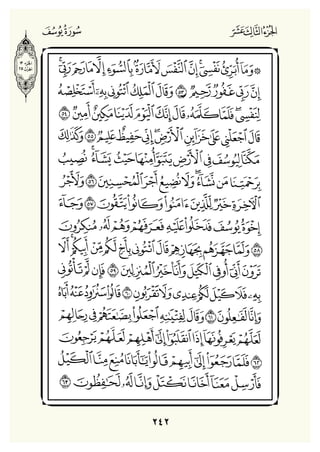 الجُزْءُ الثَّالِثَ عَشَرَ
سُورَةُ يُوسُفَ
۞ وَمَآ أُبَرِّئُ نَفْسِيٓۚ إِنَّ ٱلنَّفْسَ لَأَمَّارَةُۢ بِٱلسُّوٓءِ إِلَّا مَا رَحِمَ رَبِّيٓۚ
إِنَّ رَبِّي غَفُورٞ رَّحِيمٞ ٥٣ وَقَالَ ٱلۡمَلِكُ ٱئۡتُونِي بِهِۦٓ أَسۡتَخۡلِصۡهُ
لِنَفۡسِيۖ فَلَمَّا كَلَّمَهُۥ قَالَ إِنَّكَ ٱلۡيَوۡمَ لَدَيۡنَا مَكِينٌ أَمِينٞ ٥٤
قَالَ ٱجۡعَلۡنِي عَلَىٰ خَزَآئِنِ ٱلۡأَرۡضِۖ إِنِّي حَفِيظٌ عَلِيمٞ ٥٥ وَكَذَٰلِكَ
مَكَّنَّا لِيُوسُفَ فِي ٱلۡأَرۡضِ يَتَبَوَّأُ مِنۡهَا حَيۡثُ يَشَآءُۚ نُصِيبُ
بِرَحۡمَتِنَا مَن نَّشَآءُۖ وَلَا نُضِيعُ أَجۡرَ ٱلۡمُحۡسِنِينَ ٥٦ وَلَأَجۡرُ
ٱلۡأٓخِرَةِ خَيۡرٞ لِّلَّذِينَ ءَامَنُواْ وَكَانُواْ يَتَّقُونَ ٥٧ وَجَآءَ
إِخۡوَةُ يُوسُفَ فَدَخَلُواْ عَلَيۡهِ فَعَرَفَهُمۡ وَهُمۡ لَهُۥ مُنكِرُونَ
٥٨ وَلَمَّا جَهَّزَهُم بِجَهَازِهِمۡ قَالَ ٱئۡتُونِي بِأَخٖ لَّكُم مِّنۡ أَبِيكُمۡۚ أَلَا
تَرَوۡنَ أَنِّيٓ أُوفِي ٱلۡكَيۡلَ وَأَنَا۠ خَيۡرُ ٱلۡمُنزِلِينَ ٥٩ فَإِن لَّمۡ تَأۡتُونِي
بِهِۦ فَلَا كَيۡلَ لَكُمۡ عِندِي وَلَا تَقۡرَبُونِ ٦٠ قَالُواْ سَنُرَٰوِدُ عَنۡهُ أَبَاهُ
وَإِنَّا لَفَٰعِلُونَ ٦١ وَقَالَ لِفِتۡيَٰنِهِ ٱجۡعَلُواْ بِضَٰعَتَهُمۡ فِي رِحَالِهِمۡ
لَعَلَّهُمۡ يَعۡرِفُونَهَآ إِذَا ٱنقَلَبُوٓاْ إِلَىٰٓ أَهۡلِهِمۡ لَعَلَّهُمۡ يَرۡجِعُونَ
٦٢ فَلَمَّا رَجَعُوٓاْ إِلَىٰٓ أَبِيهِمۡ قَالُواْ يَٰٓأَبَانَا مُنِعَ مِنَّا ٱلۡكَيۡلُ
فَأَرۡسِلۡ مَعَنَآ أَخَانَا نَكۡتَلۡ وَإِنَّا لَهُۥ لَحَٰفِظُونَ ٦٣
٢٤٢